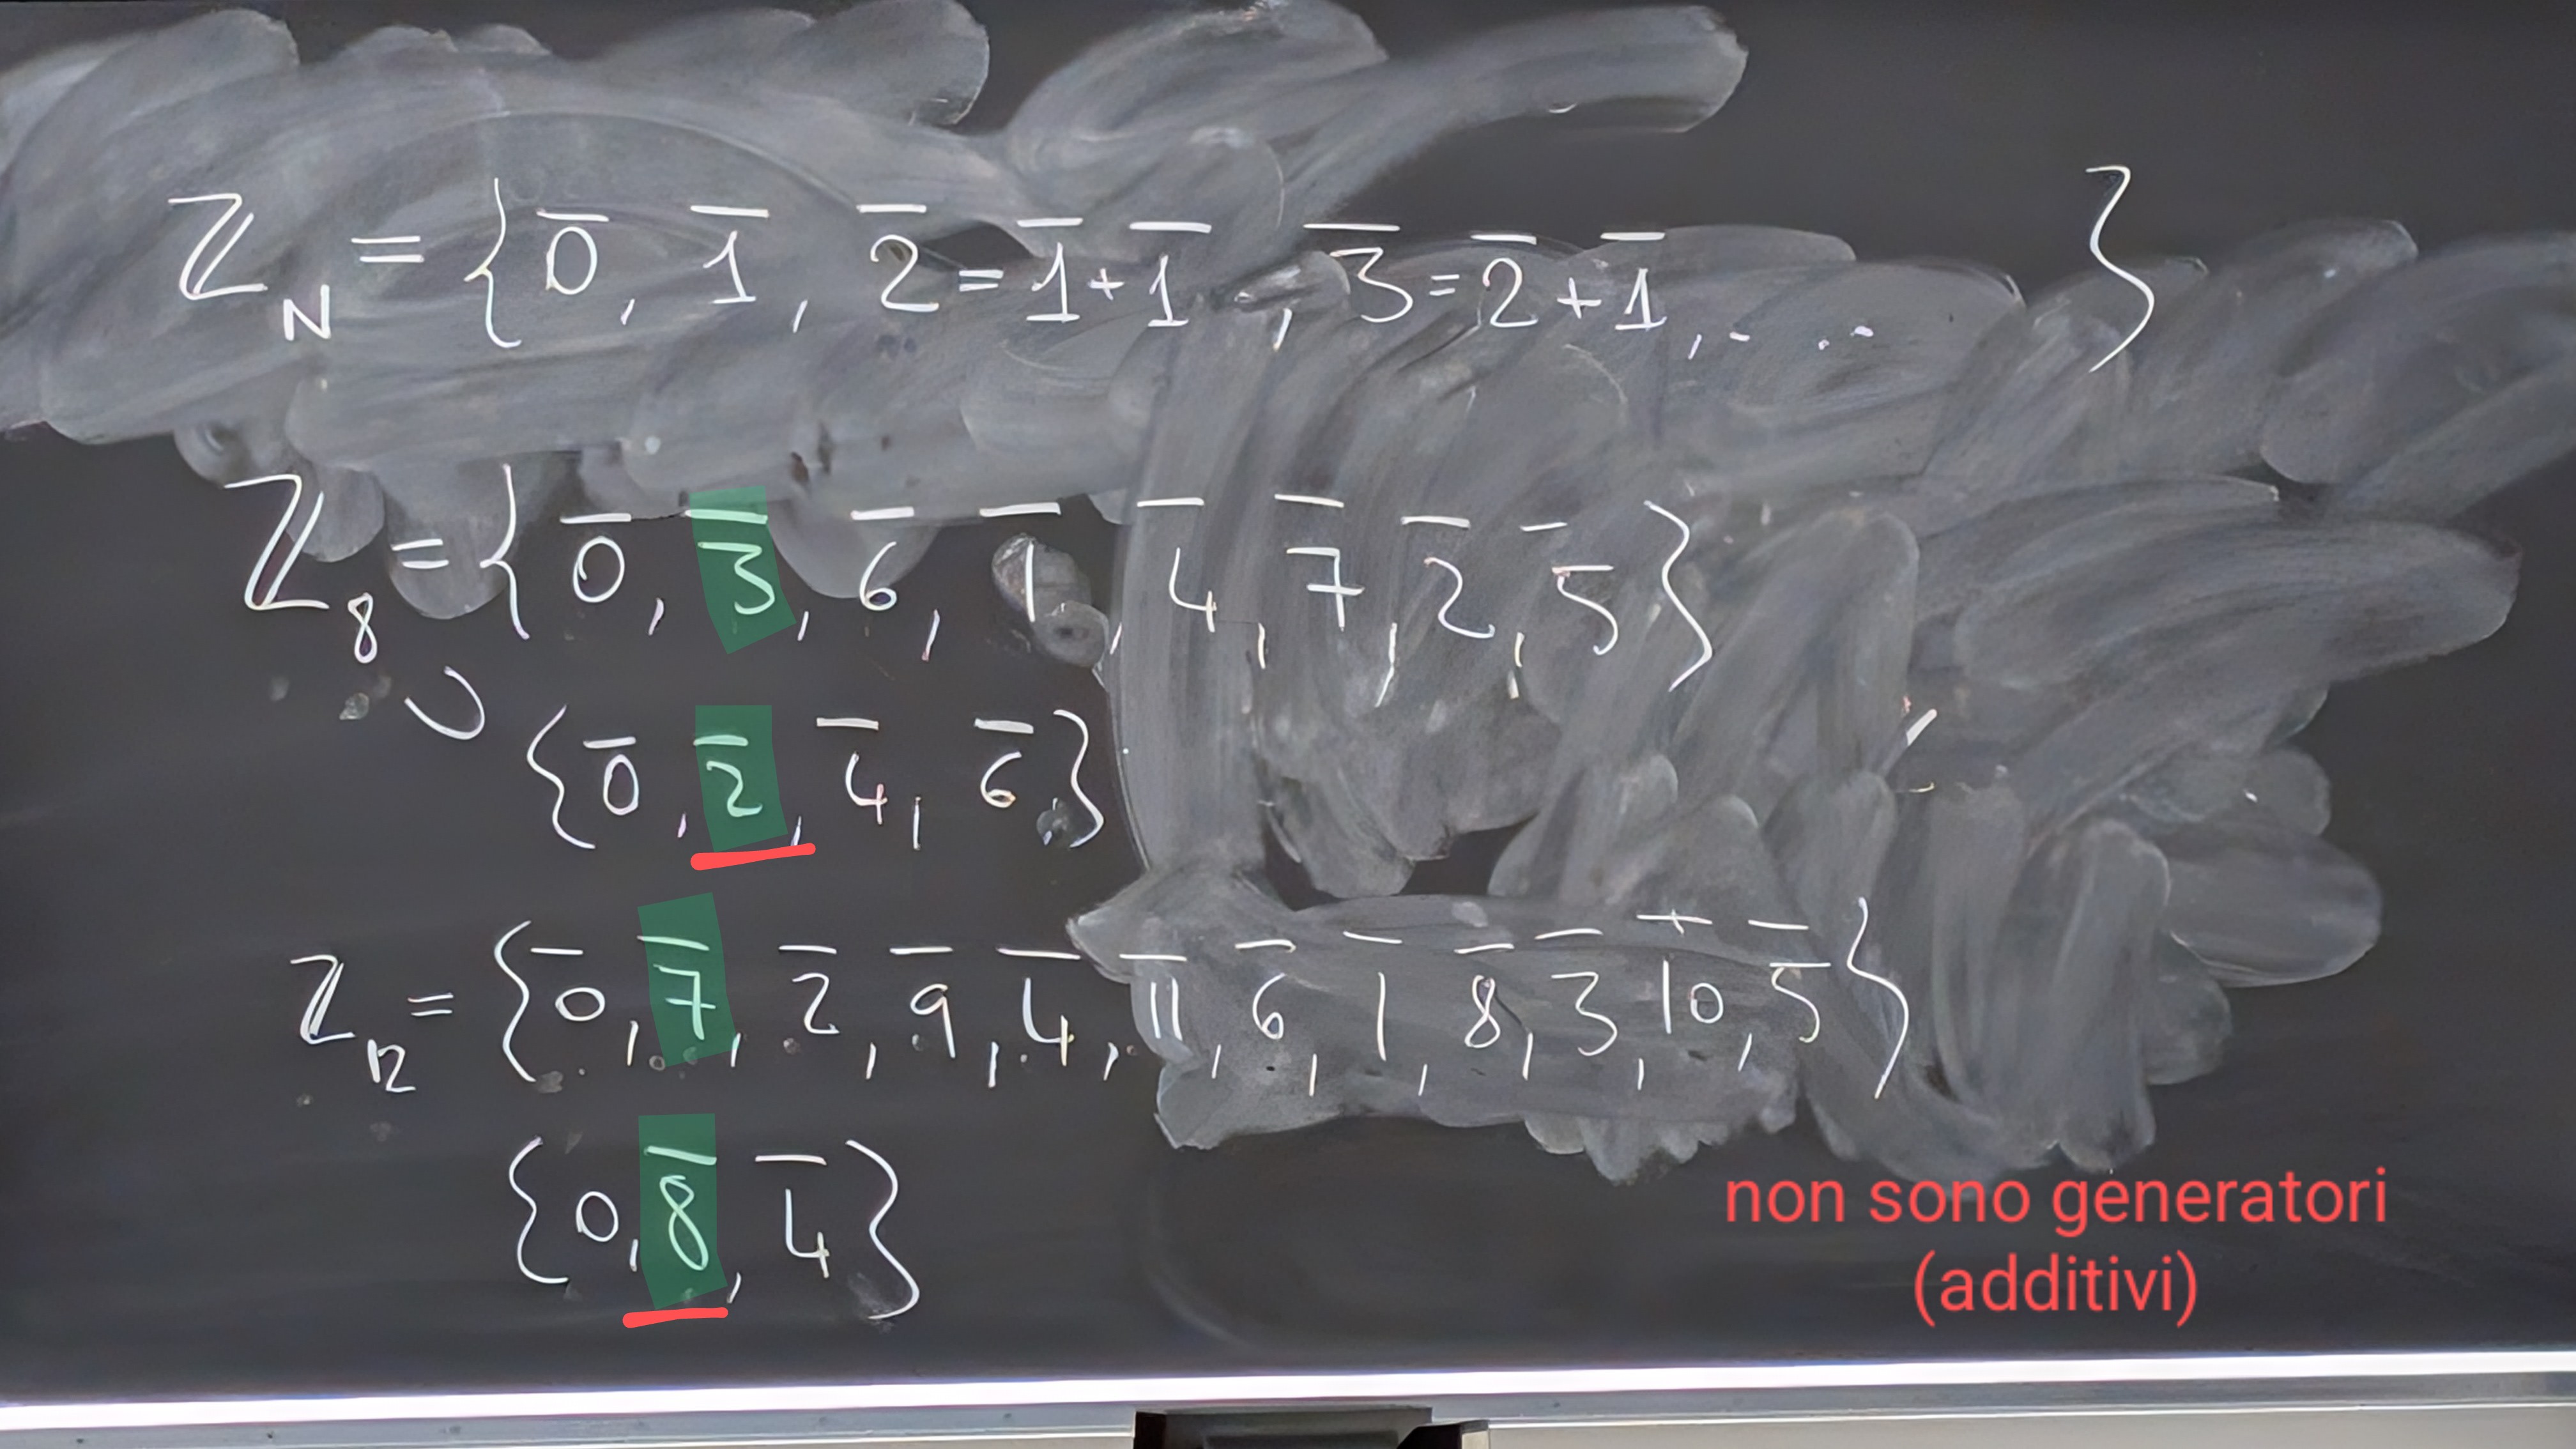 ℤ_N = { 0̅, 1̅, 2̅ = 1̅ + 1̅, 3̅ = 2̅ + 1̅, . . . }
ℤ_8 = { 0̅, 3̅, 6̅, 1̅, 4̅, 7̅, 2̅, 5̅ }
∪ { 0̅, 2̅, 4̅, 6̅ }
ℤ_12 = { 0̅, 7̅, 2̅, 9̅, 4̅, 1̅1̅, 6̅, 1̅, 8̅, 3̅, 1̅0̅, 5̅ }
{ 0, 8̅, 4̅ }
non sono generatori
(additivi)